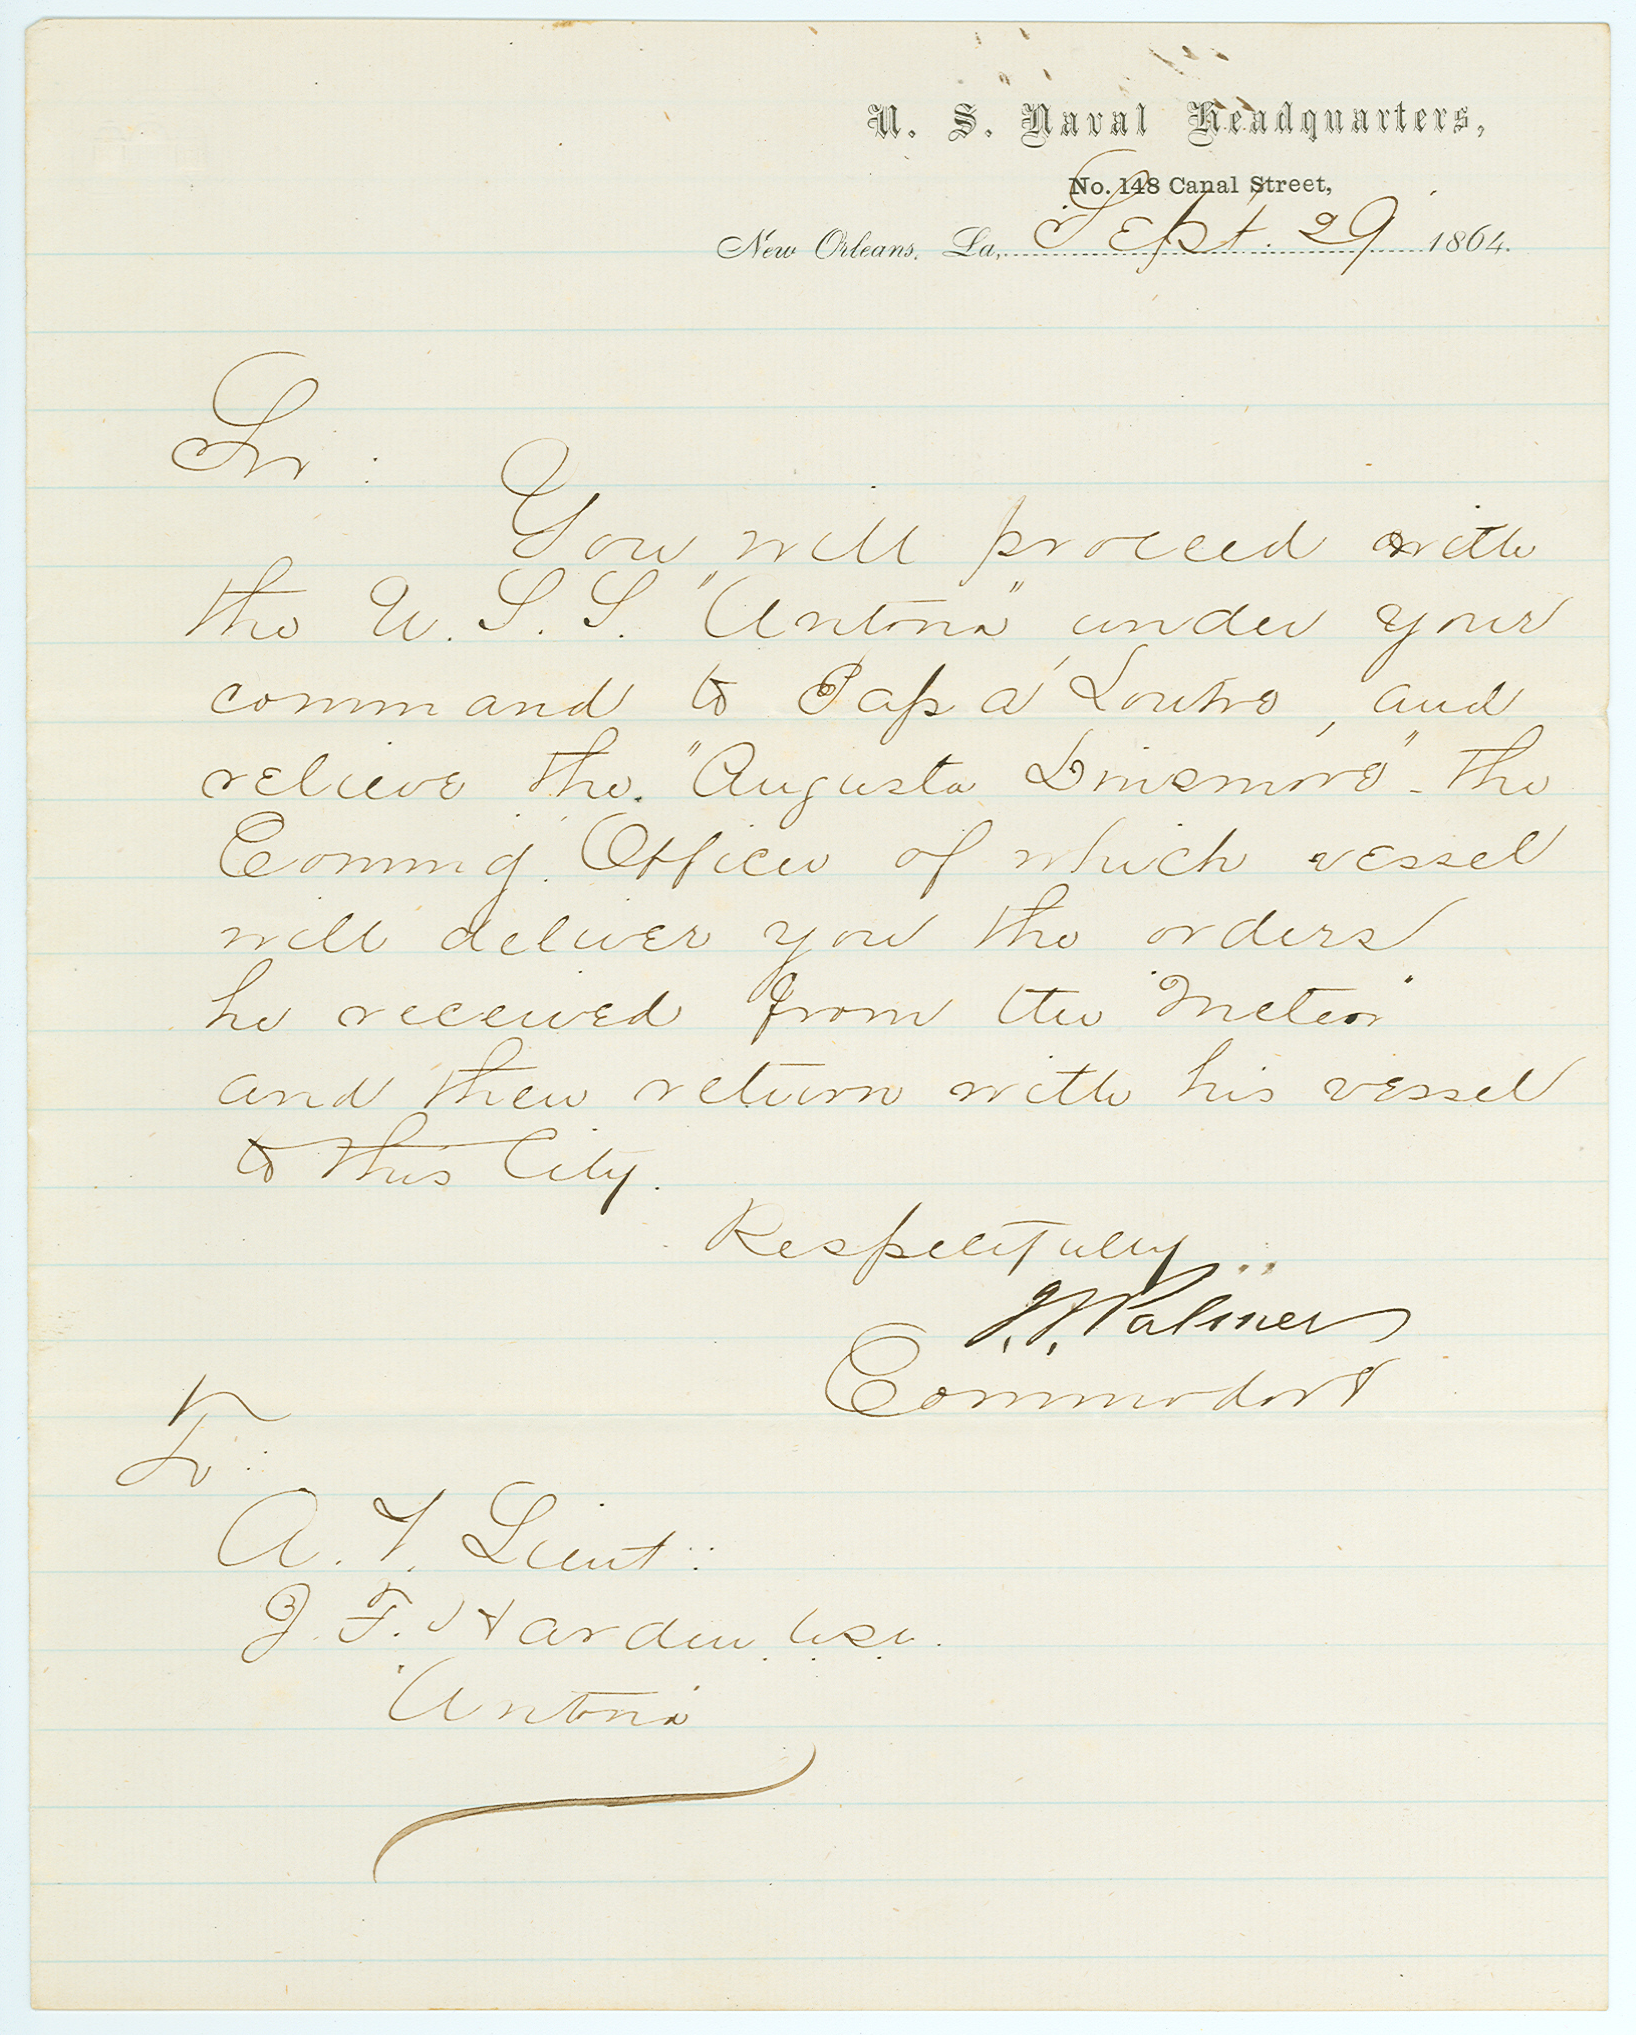 U. S. Naval Headquarters,
No. 148 Canal Street,
New Orleans, La, Sept. 29 1864.
Sir :
You will proceed with
the U. S. S. "Antona" under your
command to Pass a' Loutre, and
relieve the "Augusta Dinsmore" - the
Comm'g. Officer of which vessel
will deliver you the orders
he received from the "Meteor"
and then return with his vessel
to this City.
Respectfully
J. S. Palmer
Commodore
To :
A. V. Lieut :
J. F. Harden
Antona